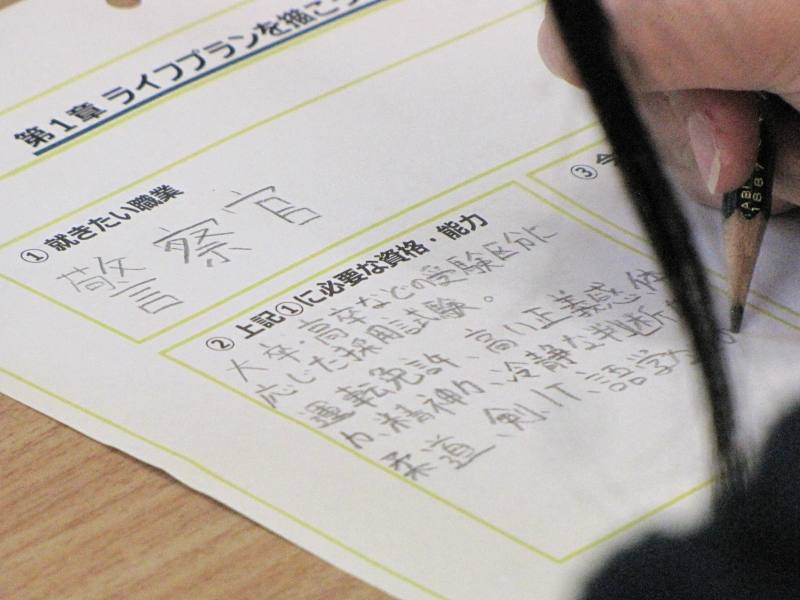 第1章 ライフプランを描こう
① 就きたい職業
警察官
② 上記①に必要な資格・能力
大卒・高卒などの受験区分に
応じた採用試験。
運転免許、高い正義感、体
力、精神力、冷静な判断力
柔道、剣、IT、語学力
③ 今
1887